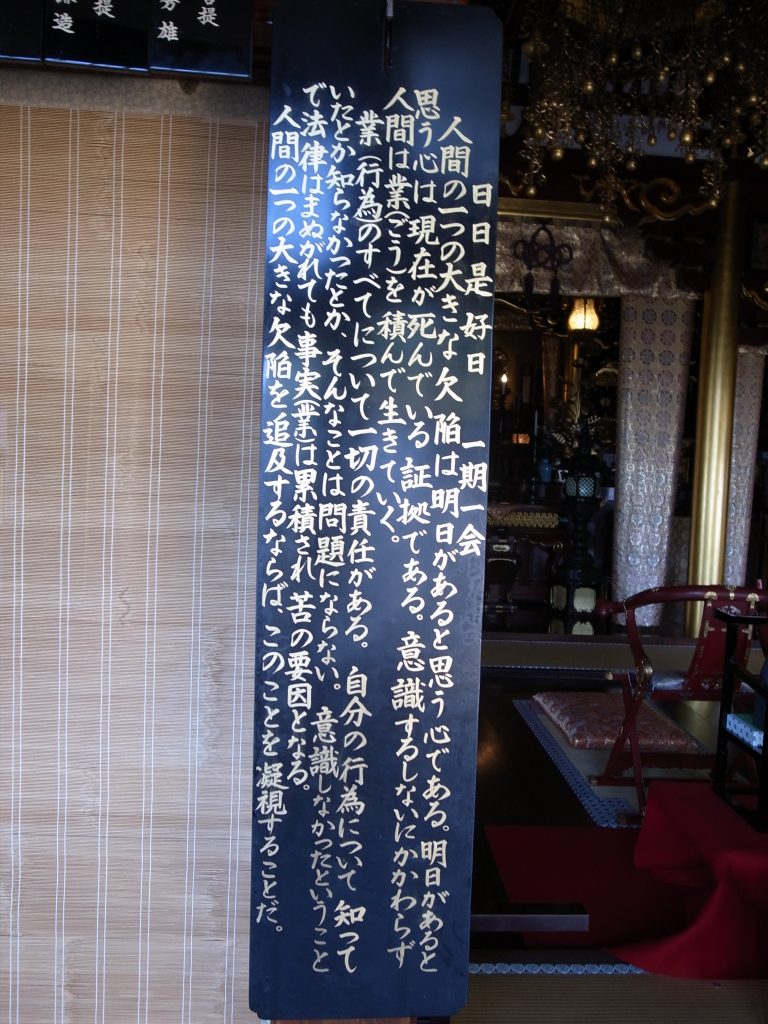 日日是好日 一期一会
人間の一つの大きな欠陥は明日があると思う心である。明日があると
思う心は現在が死んでいる証拠である。意識するしないにかかわらず
人間は業(ごう)を積んで生きていく。
業(行為のすべてについて一切の責任がある。自分の行為について知って
いたとか知らなかったとか、そんなことは問題にならない。意識しなかったということ
で法律はまぬがれても事実(業)は累積され苦の要因となる。
人間の一つの大きな欠陥を追及するならば、このことを凝視することだ。
提
秀雄
提
造